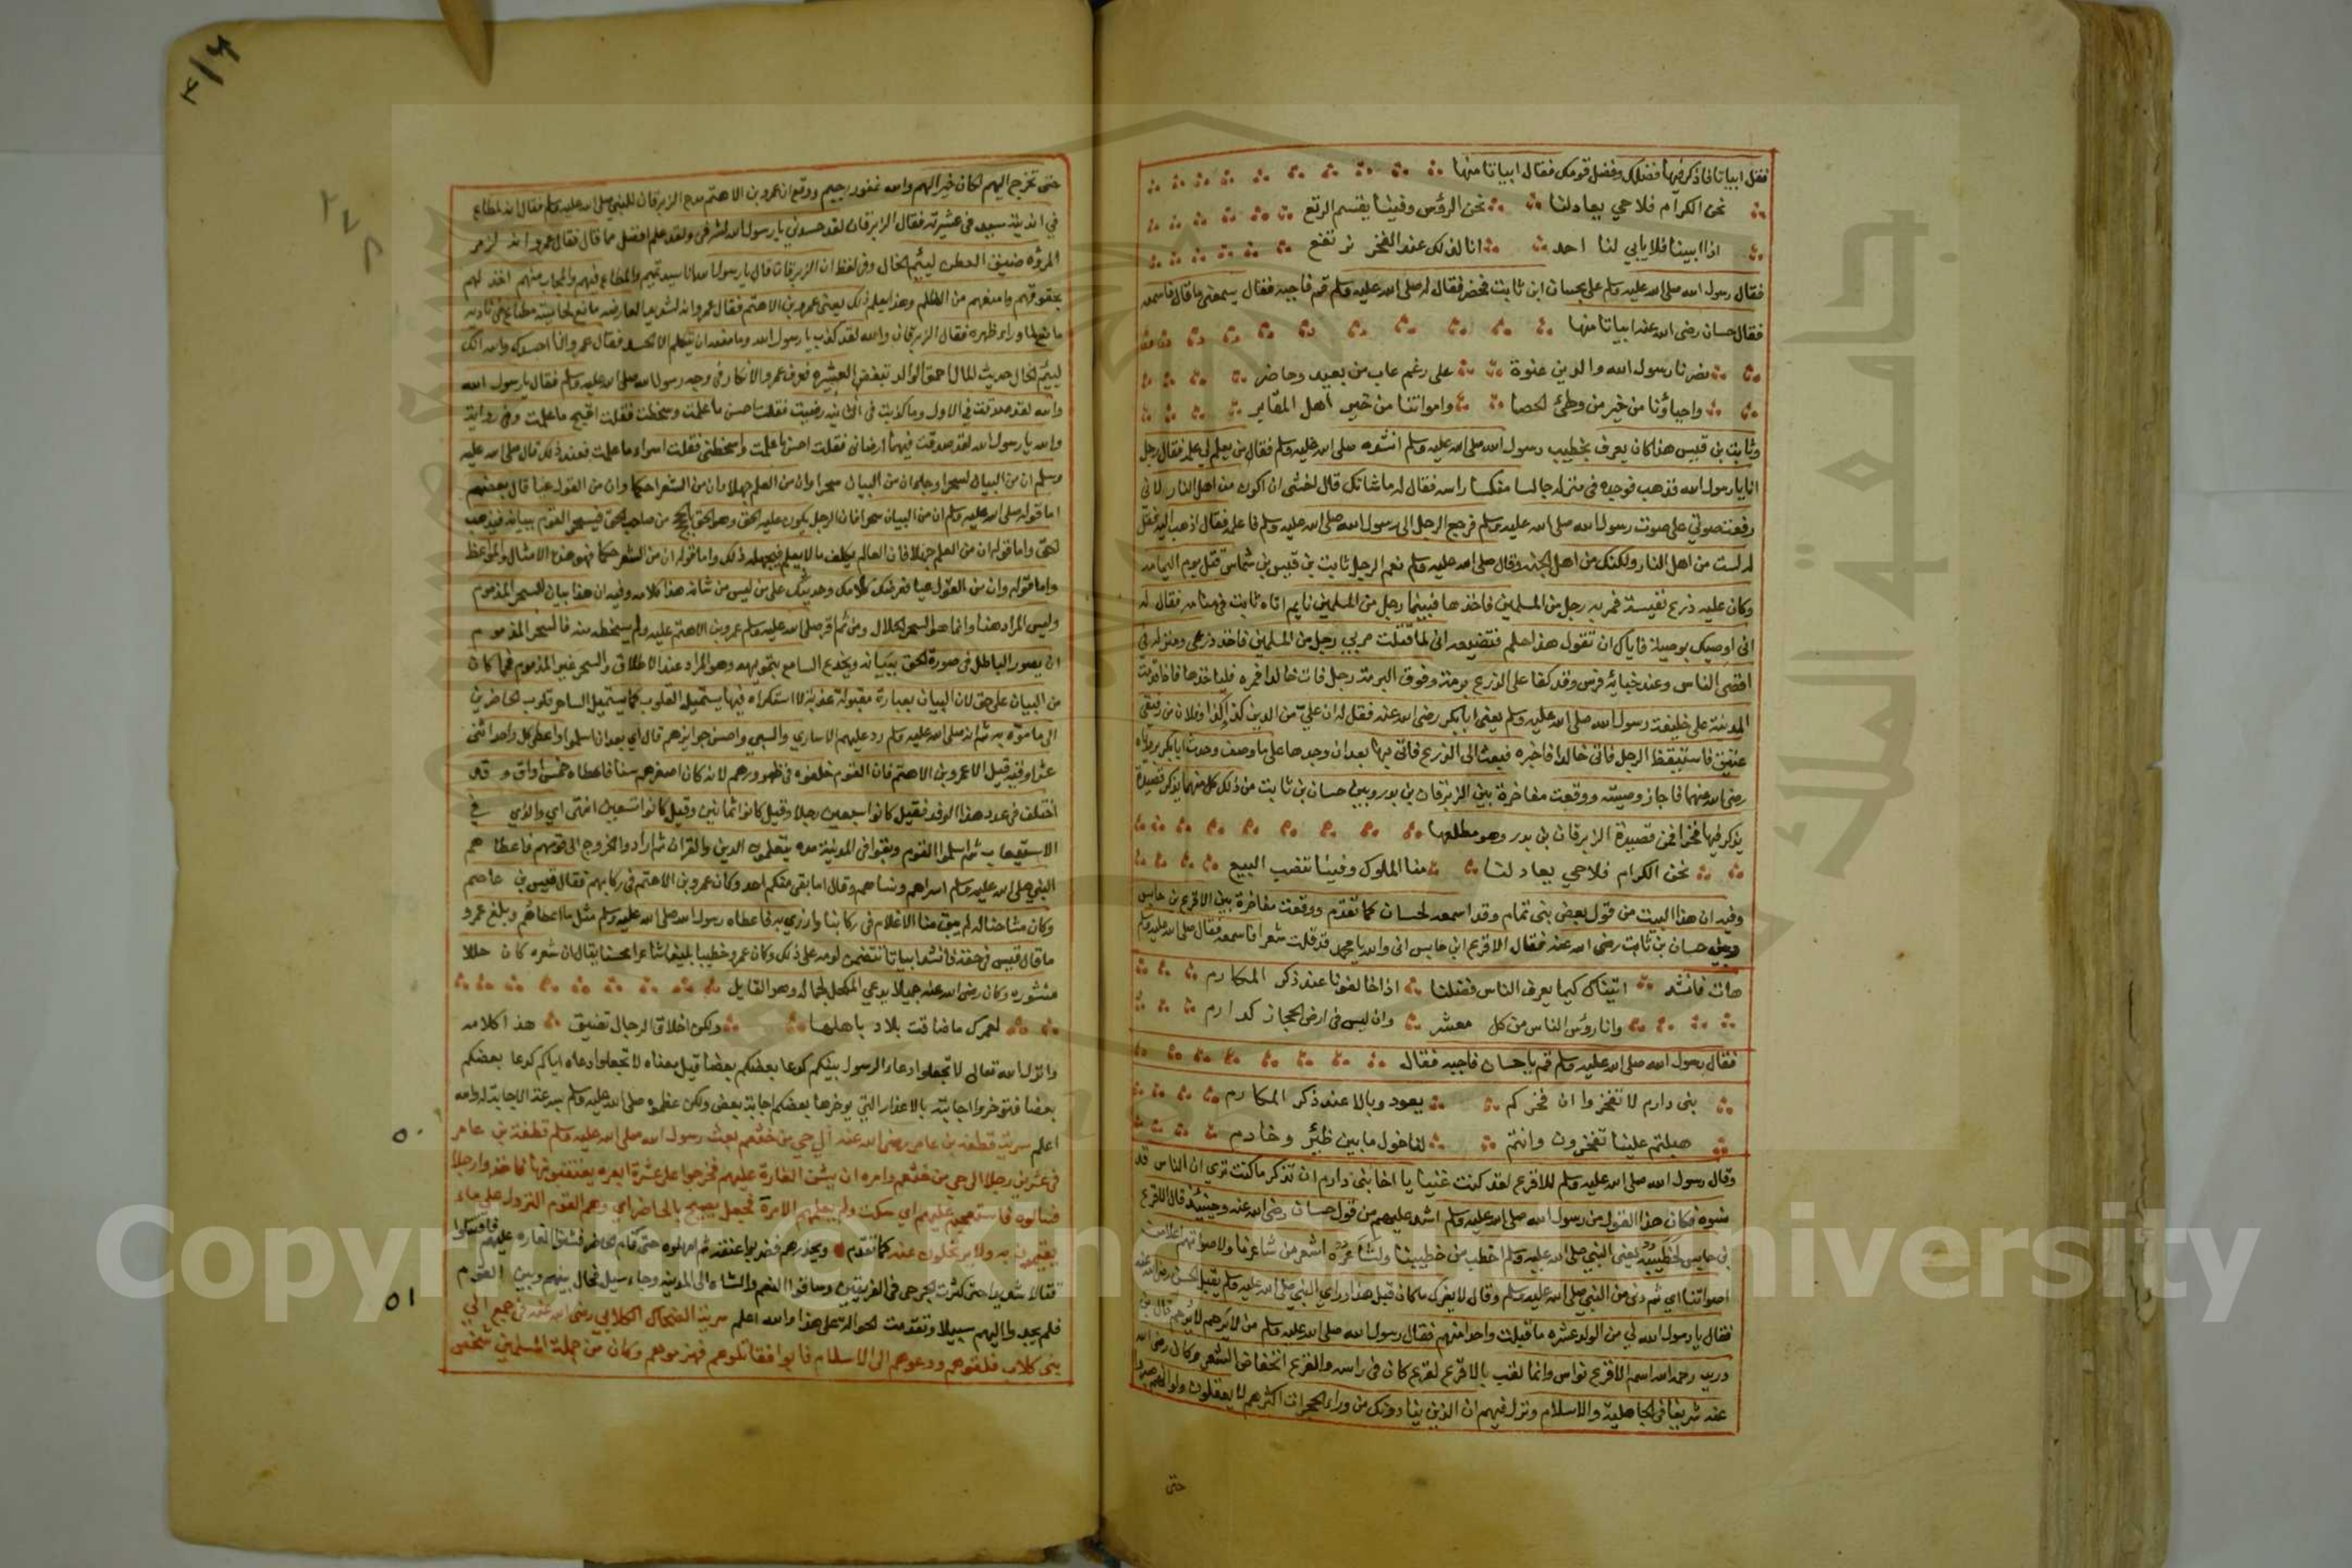 فقل ابياتا فاذكر فيها فضلك وفضل قومك فقال ابياتا منها
نحن الكرام فلا حي يعادلنا نحن الرؤس وفينا يقسم الربع
اذا ابينا فلا يابي لنا احد انا لذلك عند الفخر نرتفع
فقال رسول الله صلى الله عليه وسلم علي بحسان ابن ثابت فحضر فقال له صلى الله عليه وسلم قم فاجبه فقال يسمعني ما قال فاسمعه
فقال حسان رضى الله عنه ابياتا منها
نصرنا رسول الله والدين عنوة على رغم عاب من بعيد وحاضر
واحياؤنا من خير من وطئ الحصا وامواتنا من خير اهل المقابر
وثابت بن قيس هذا كان يعرف بخطيب رسول الله صلى الله عليه وسلم افتقده صلى الله عليه وسلم فقال من يعلم لي علمه فقال رجل
انا يا رسول الله فذهب فوجده في منزله جالسا منكسا راسه فقال له ما شانك قال اخشى ان اكون من اهل النار لاني
رفعت صوتي على صوت رسول الله صلى الله عليه وسلم فرجع الرجل الى رسول الله صلى الله عليه وسلم فاعلمه فقال اذهب اليه فقل
له لست من اهل النار ولكنك من اهل الجنة وقال صلى الله عليه وسلم نعم الرجل ثابت بن قيس بن شماس قتل يوم اليمامه
وكان عليه درع نفيسة فمر به رجل من المسلمين فاخذها فبينما رجل من المسلمين نايم اتاه ثابت في منامه فقال له
اني اوصيك بوصية فاياك ان تقول هذا حلم فتضيعه اني لما قتلت مر بي رجل من المسلمين فاخذ درعي ومنزله في
اقصى الناس وعند خبائه فرس وقد كفا على الدرع برمة وفوق البرمة رجل فات خالدا فمره فلياخذها فاذا قدمت
المدينة على خليفة رسول الله صلى الله عليه وسلم يعني ابا بكر رضى الله عنه فقل له ان علي من الدين كذا كذا وفلان من رقيقي
عتيق فاستيقظ الرجل فاتى خالدا فاخبره فبعث الى الدرع فاتى بها بعد ان وجدها على ما وصف وحدث ابا بكر برؤياه
رضى الله عنهما فاجاز وصيته ووقعت مفاخرة بين الزبرقان بن بدر وبين حسان بن ثابت من ذلك كل منهما يذكر قصيدة
يذكر فيها فخرا فمن قصيدة الزبرقان بن بدر وهو مطلعها
نحن الكرام فلا حي يعادلنا منا الملوك وفينا تنصب البيع
وفيه ان هذا البيت من قول بعض بني تمام وقد اسمعه لحسان كما تقدم ووقعت مفاخرة بين الاقرع بن حابس
وبين حسان بن ثابت رضى الله عنه فقال الاقرع ابن حابس اني والله يا محمد قد قلت شعرا فاسمعه فقال صلى الله عليه وسلم
هات فانشد اتيناك كيما يعرف الناس فضلنا اذا خالفونا عند ذكر المكارم
وانا رؤس الناس من كل معشر وان ليس في ارض الحجاز كدارم
فقال رسول الله صلى الله عليه وسلم قم يا حسان فاجبه فقال
بني دارم لا تفخروا ان فخركم يعود وبالا عند ذكر المكارم
هبلتم علينا تفخرون وانتم لنا خول ما بين ظئر وخادم
وقال رسول الله صلى الله عليه وسلم للاقرع لقد كنت غنيا يا اخا بني دارم ان تذكر ما كنت ترى ان الناس قد
نسوه فكان هذا القول من رسول الله صلى الله عليه وسلم اشد عليهم من قول حسان رضى الله عنه وحينئذ قال الاقرع
بن حابس لخطيبه يعني النبي صلى الله عليه وسلم اخطب من خطيبنا ولشاعره اشعر من شاعرنا ولاصواتهم اعلا من
اصواتنا اي ثم دنى من النبي صلى الله عليه وسلم وقال لا يضرك ما كان قبل هذا وراي النبي صلى الله عليه وسلم يقبل الحسن رضى الله عنه
فقال يا رسول الله لي من الولد عشره ما قبلت واحدا منهم فقال رسول الله صلى الله عليه وسلم من لا يرحم لا يرحم قال بن
دريد رحمه الله اسم الاقرع نواس وانما لقب بالاقرع لقرع كان في راسه والقرع انخفاض الشعر وكان رضى الله
عنه شريفا في الجاهلية والاسلام ونزل فيهم ان الذين ينادونك من وراء الحجرات اكثرهم لا يعقلون ولو انهم صبروا
حتى
حتى تخرج اليهم لكان خيرا لهم والله غفور رحيم ووقع ان عمرو بن الاهتم مدح الزبرقان للنبي صلى الله عليه وسلم فقال انه لمطاع
في انديته سيد في عشيرته فقال الزبرقان لقد حسدني يا رسول الله لشرفي ولقد علم افضل مما قال فقال عمرو انه لزمر
المروّة ضيق العطن لئيم الخال وفي لفظ ان الزبرقان قال يا رسول الله انا سيد تميم والمطاع فيهم والمجاب منهم اخذ لهم
بحقوقهم وامنعهم من الظلم وهذا يعلم ذلك يعني عمرو بن الاهتم فقال عمرو انه لشديد العارضه مانع لجانبه مطاع في ناديه
مانع لما وراء ظهره فقال الزبرقان والله لقد كذب يا رسول الله وما منعه ان يتكلم الا الحسد فقال عمرو انا احسدك والله انك
لئيم الخال حديث المال احمق الولد مبغض في العشيره فعرف عمرو الانكار في وجه رسول الله صلى الله عليه وسلم فقال يا رسول الله
والله لقد صدقت في الاول وما كذبت في الثانيه رضيت فقلت احسن ما علمت وسخطت فقلت اقبح ما علمت وفي رواية
والله يا رسول الله لقد صدقت فيهما ارضاني فقلت احسن ما علمت واسخطني فقلت اسواء ما علمت فعند ذلك قال صلى الله عليه
وسلم ان من البيان لسحرا وجاء ان من البيان سحرا وان من العلم جهلا وان من الشعر حكما وان من القول عيا قال بعضهم
اما قوله صلى الله عليه وسلم ان من البيان سحرا فان الرجل يكون عليه الحق وهو الحن بالحجج من صاحب الحق فيسحر القوم ببيانه فيذهب
بالحق واما قوله ان من العلم جهلا فان العالم يكلف ما لا يعلم فيجهله ذلك واما قوله ان من الشعر حكما فهو هذه الامثال والمواعظ
واما قوله وان من القول عيا فعرضك كلامك وحديثك على من ليس من شانه هذا كلامه وفيه ان هذا بيان للسحر المذموم
وليس المراد هنا وانما هو السحر الحلال ومن ثم اقر صلى الله عليه وسلم عمرو بن الاهتم عليه ولم يسخطه منه فالسحر المذموم
ان يصور الباطل في صورة الحق ببيانه ويخدع السامع بتمويهه وهو المراد عند الاطلاق والسحر غير المذموم فما كان
من البيان على حق لان البيان بعبارة مقبولة عذبة لا استكراه فيها يستميل القلوب كما يستميل الساحر قلوب الحاضرين
الى ما موّه به ثم انه صلى الله عليه وسلم رد عليهم الاسارى والسبي واحسن جوايزهم قال اي بعد ان اسلموا واعطى كل واحد اثنى
عشر اوقيه قيل الا عمرو بن الاهتم فان القوم خلفوه في ظهورهم لانه كان اصغرهم سنا فاعطاه خمس اواق وقد
اختلف في عدد هذا الوفد فقيل كانوا سبعين رجلا وقيل كانوا ثمانين وقيل كانوا تسعين انتهى اي والذي في
الاستيعاب ثم اسلموا القوم وبقوا في المدينة مدة يتعلمون الدين والقران ثم ارادوا الخروج الى قومهم فاعطاهم
النبي صلى الله عليه وسلم اسراهم ونساهم وقال اما بقي منكم احد وكان عمرو بن الاهتم في ركابهم فقال قيس بن عاصم
وكان مشاحنا له لم يبق منا الا غلام في ركابنا وازري به فاعطاه رسول الله صلى الله عليه وسلم مثل ما اعطاهم وبلغ عمرو
ما قال قيس في حقه فانشد ابياتا تتضمن لومه على ذلك وكان عمرو خطيبا بليغا شاعرا محسنا يقال ان شعره كان حللا
منشوره وكان رضى الله عنه جميلا يدعي المكحل لجماله وهو القايل
لعمرك ما ضاقت بلاد باهلها ولكن اخلاق الرجال تضيق هذا كلامه
وانزل الله تعالى لا تجعلوا دعاء الرسول بينكم كدعا بعضكم بعضا قيل معناه لا تجعلوا دعاه اياكم كدعا بعضكم
بعضا فتوخروا اجابته بالاعذار التي يوخرها بعضكم اجابة بعض ولكن عظموه صلى الله عليه وسلم بسرعة الاجابة له والله
اعلم سرية قطبة بن عامر رضى الله عنه الي حي من خثعم بعث رسول الله صلى الله عليه وسلم قطبة بن عامر
في عشرين رجلا الى حي من خثعم وامره ان يشن الغارة عليهم فخرجوا على عشرة ابعرة يعتقبونها فاخذوا رجلا
فسالوه فاستعجم عليهم اي سكت ولم يعلمهم الامر فجعل يصيح بالحاضر اي وهم القوم النزول على ماء
يقيمون به ولا يرتحلون عنه كما تقدم ويحذرهم فضربوا عنقه ثم امهلوه حتى نام الحاضر فشنوا الغاره عليهم فاقتتلوا
قتالا شديدا حتى كثرت الجرحى في الفريقين وساقوا النعم والشاء الى المدينه وجاء سيل فحال بينهم وبين القوم
فلم يجدوا اليهم سبيلا وتقدمت الحوالة على هذا والله اعلم سرية الضحاك الكلابي رضى الله عنه في جمع الي
بني كلاب فلقوهم ودعوهم الى الاسلام فابوا فقاتلوهم فهزموهم وكان من جملة المسلمين شخص
٥٠
٥١
Copyright © King Saud University
جامعة الملك سعود